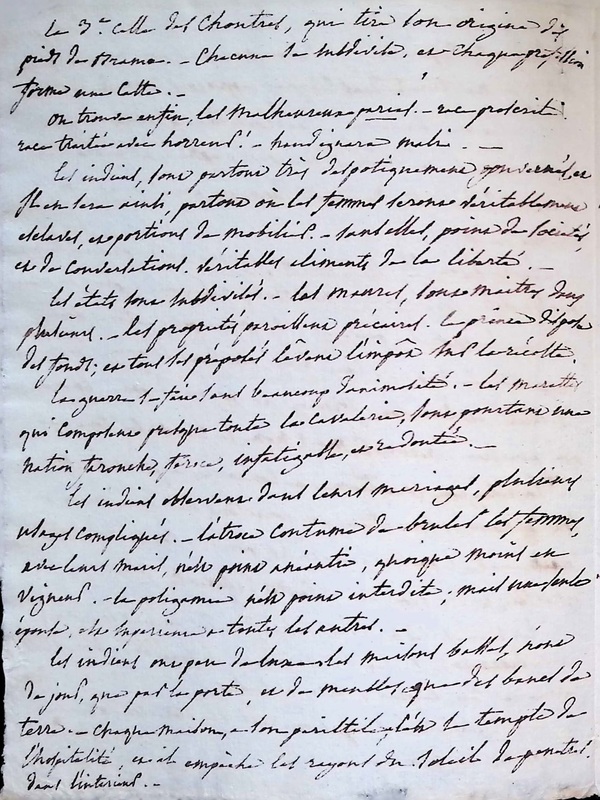 Le 3.e celle des Choutres, qui tire son origine des
pieds de Brama. - Chacune se subdivise, et chaque profession
forme une Caste. -
On trouve enfin, les malheureux parias. - race proscrite.
race traitée avec horreur! -
Les indiens, sont partout très despotiquement gouvernés, et
il en sera ainsi, partout où les femmes seront véritablement
esclaves, et portions de mobiliés. - sans elles, point de sociétés,
et de conversations. véritables eliments de la liberté. -
Les états sont subdivisés. - les maures, sont maitres dans
plusieurs. - les propriétés paroissent précaires. le prince dispose
des fonds; et tous ses préposés lèvent l'impôt sur la récolte.
La guerre se fait sans beaucoup d'animosité. - Les marattes
qui composent presque toute la Cavalerie, sont pourtant une
nation farouche, feroce, infatigable, et redoutée. -
Les indiens observent dans leurs mariages, plusieurs
usages compliqués. - l'atroce coutume de bruler les femmes,
avec leurs maris, n'est point anéantie, quoique moins en
vigueur. - la poligamie n'est point interdite; mais une seule
épouse, est supérieure a toutes les autres. -
Les indiens ont peu de luxe. les maisons basses, n'ont
de jour, que par la porte, et de meubles que des bancs de
terre. - Chaque maison, a son c'est le temple de
l'hospitalité, et il empêche les rayons du soleil de penetrer
dans l'interieur. -